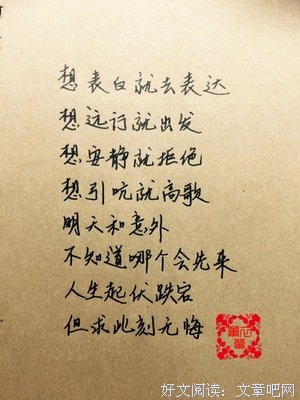 想表白就去表达
想远行就出发
想安静就拒绝
想引吭就高歌
明天和意外
不知道哪个会先来
人生起伏跌宕
但求此刻无悔
好文阅读：文章吧网